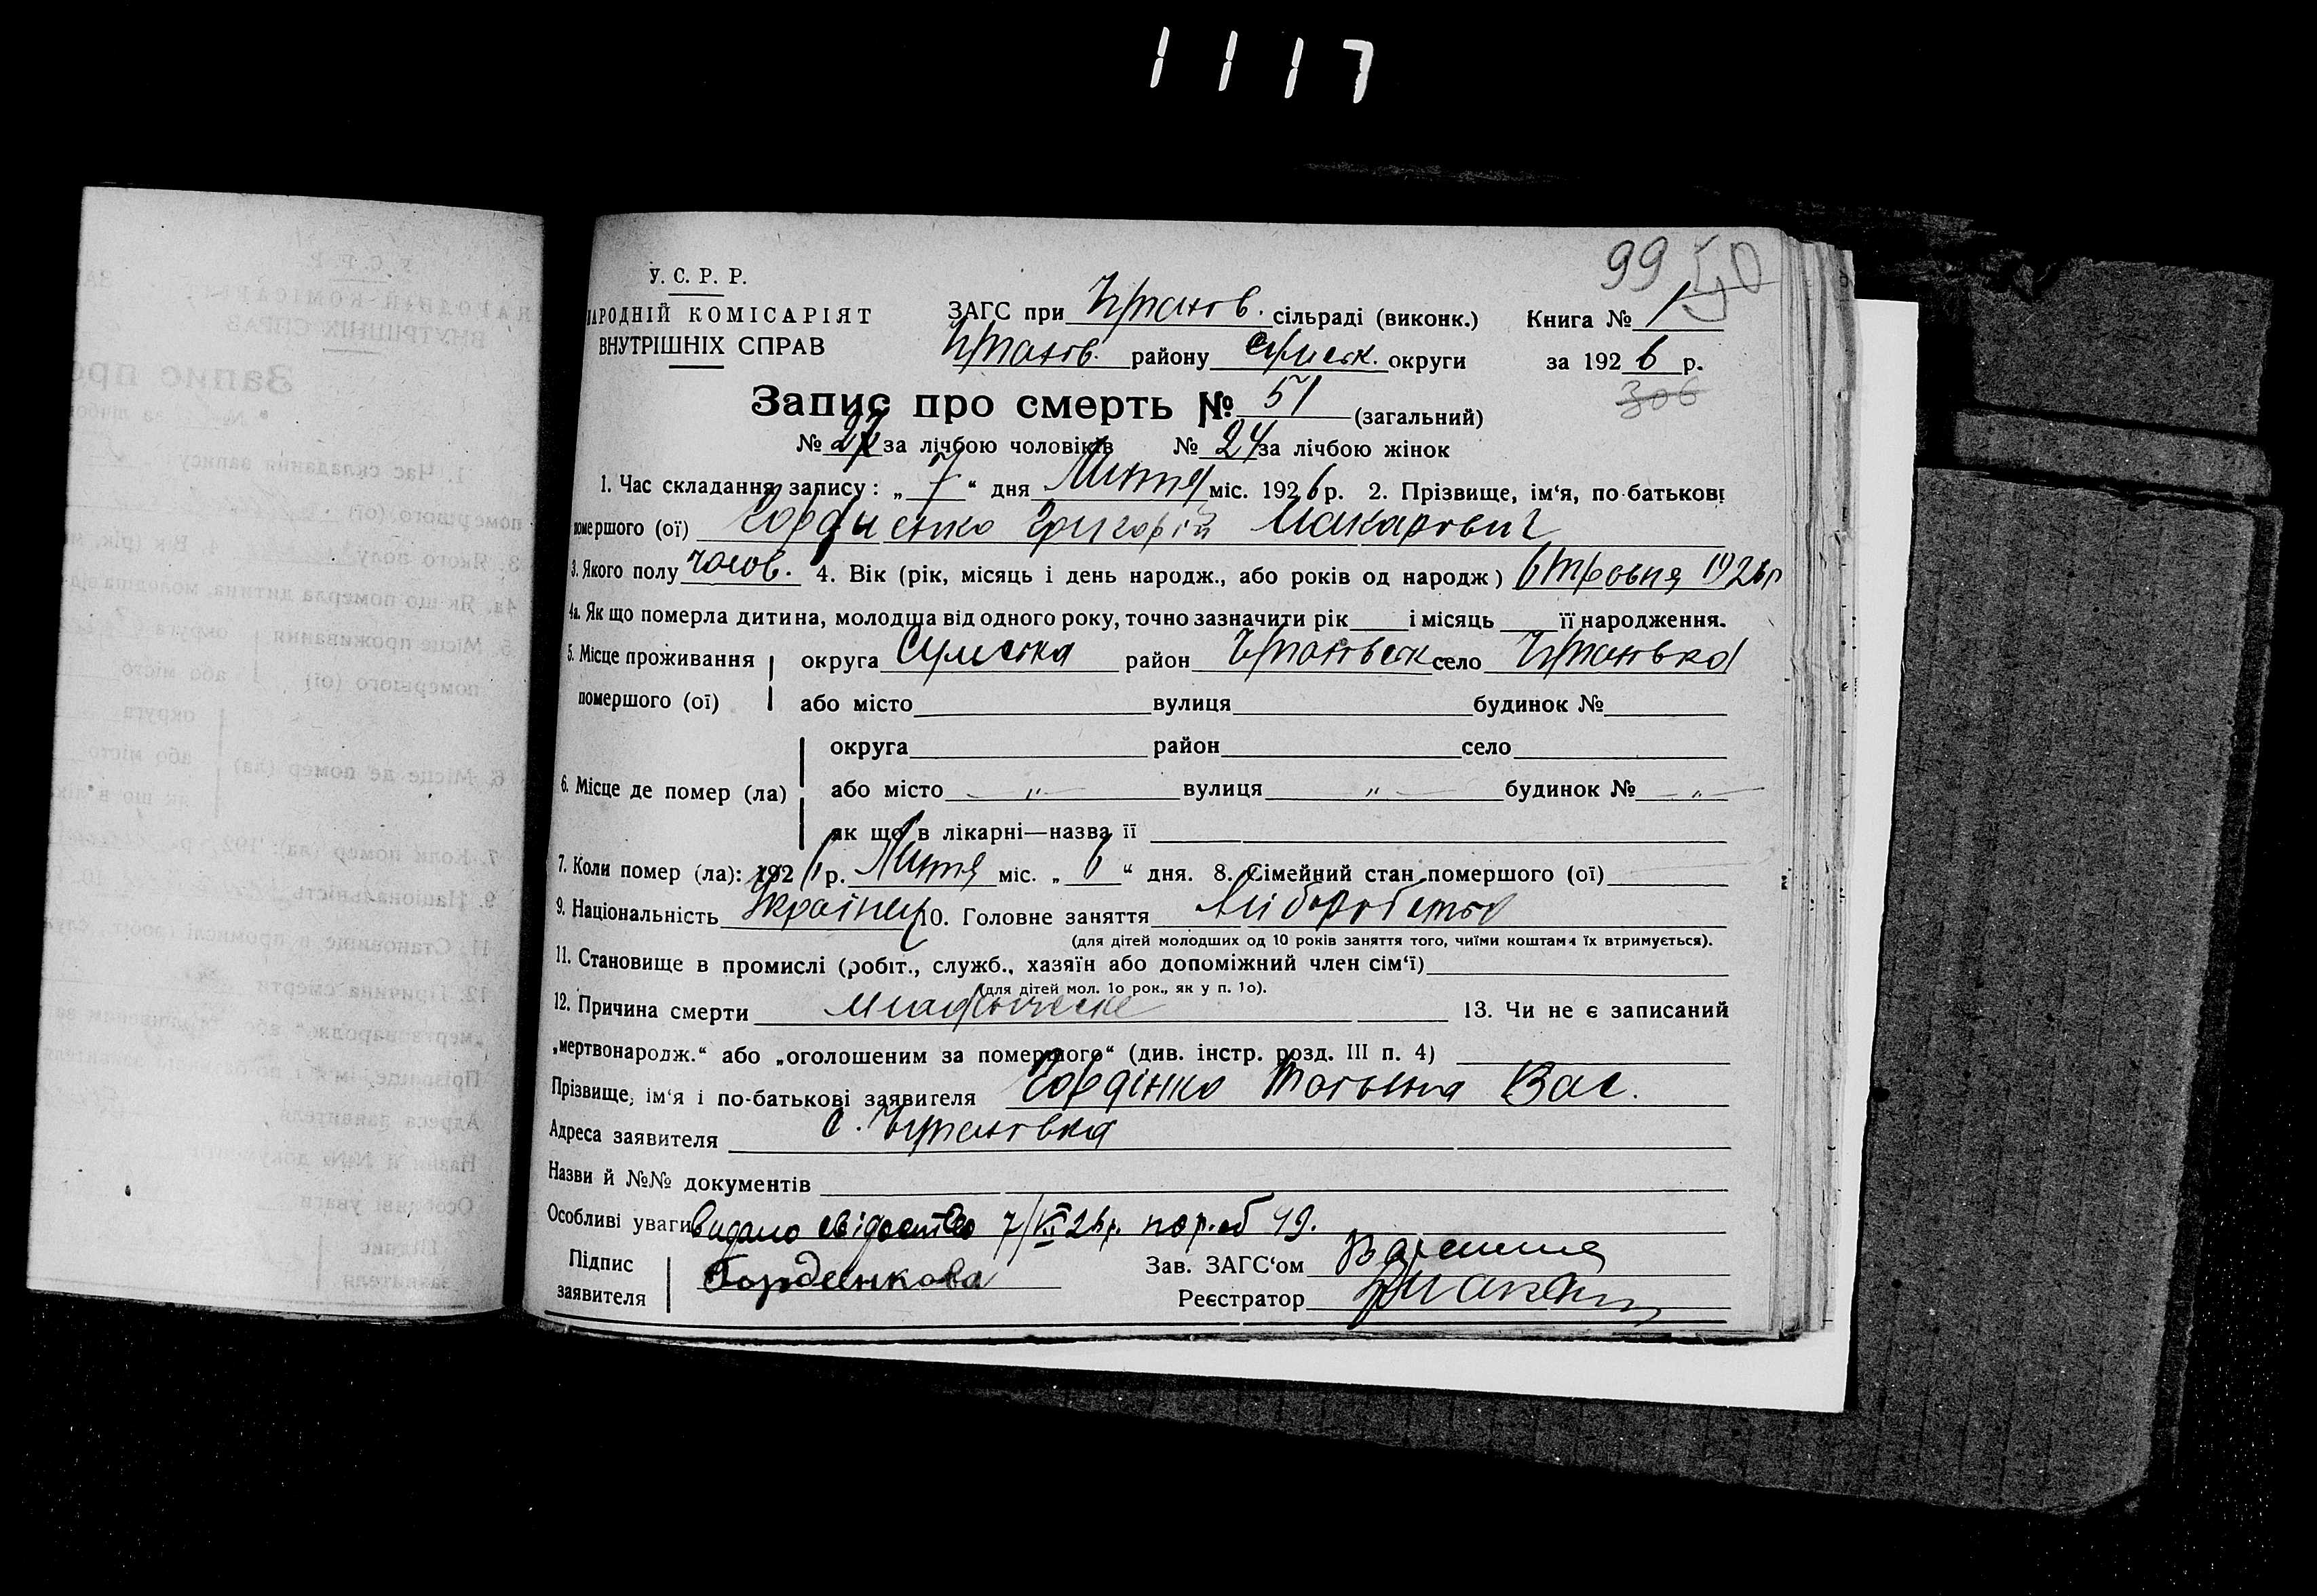 1117
99 50
У. С. Р. Р.
НАРОДНІЙ КОМІСАРІЯТ
ВНУТРІШНІХ СПРАВ
ЗАГС при сільраді (виконк.) Книга № 1
району Сумськ. округи за 1926 р.
306
Запис про смерть № 51 (загальний)
№ 27 за лічбою чоловіків № 24 за лічбою жінок
1. Час складання запису: „ 7 “ дня міс. 1926 р. 2. Прізвище, ім‘я, по-батькові
помершого (ої) Гордиенко Григорій Макарович
3. Якого полу чолов. 4. Вік (рік, місяць і день народж., або років од народж) 6 Травня 1926 р
4а. Як що померла дитина, молодща від одного року, точно зазначити рік і місяць її народження.
5. Місце проживання округа Сумська район село
помершого (ої) або місто вулиця будинок №
округа район село
6. Місце де помер (ла) або місто „ вулиця „ будинок № „
як що в лікарні—назва її
7. Коли помер (ла): 1926 р. міс. „ 6 “ дня. 8. Сімейний стан помершого (ої)
9. Національність Українец 10. Головне заняття Хліборобство
(для дітей молодших од 10 років заняття того, чиїми коштами їх втримується).
11. Становище в промислі (робіт., служб., хазяїн або допоміжний член сім‘ї)
(для дітей мол. 10 рок., як у п. 10).
12. Причина смерти 13. Чи не є записаний
„мертвонародж.“ або „оголошеним за помершого“ (див. інстр. розд. III п. 4)
Прізвище, ім‘я і по-батькові заявителя Гордінко Татьяна Вас.
Адреса заявителя с.
Назви й №№ документів
Особливі уваги Видано свідоство 7/VI 26 р. пор. об 49.
Підпис
заявителя Горденкова
Зав. ЗАГС‘ом
Реєстратор